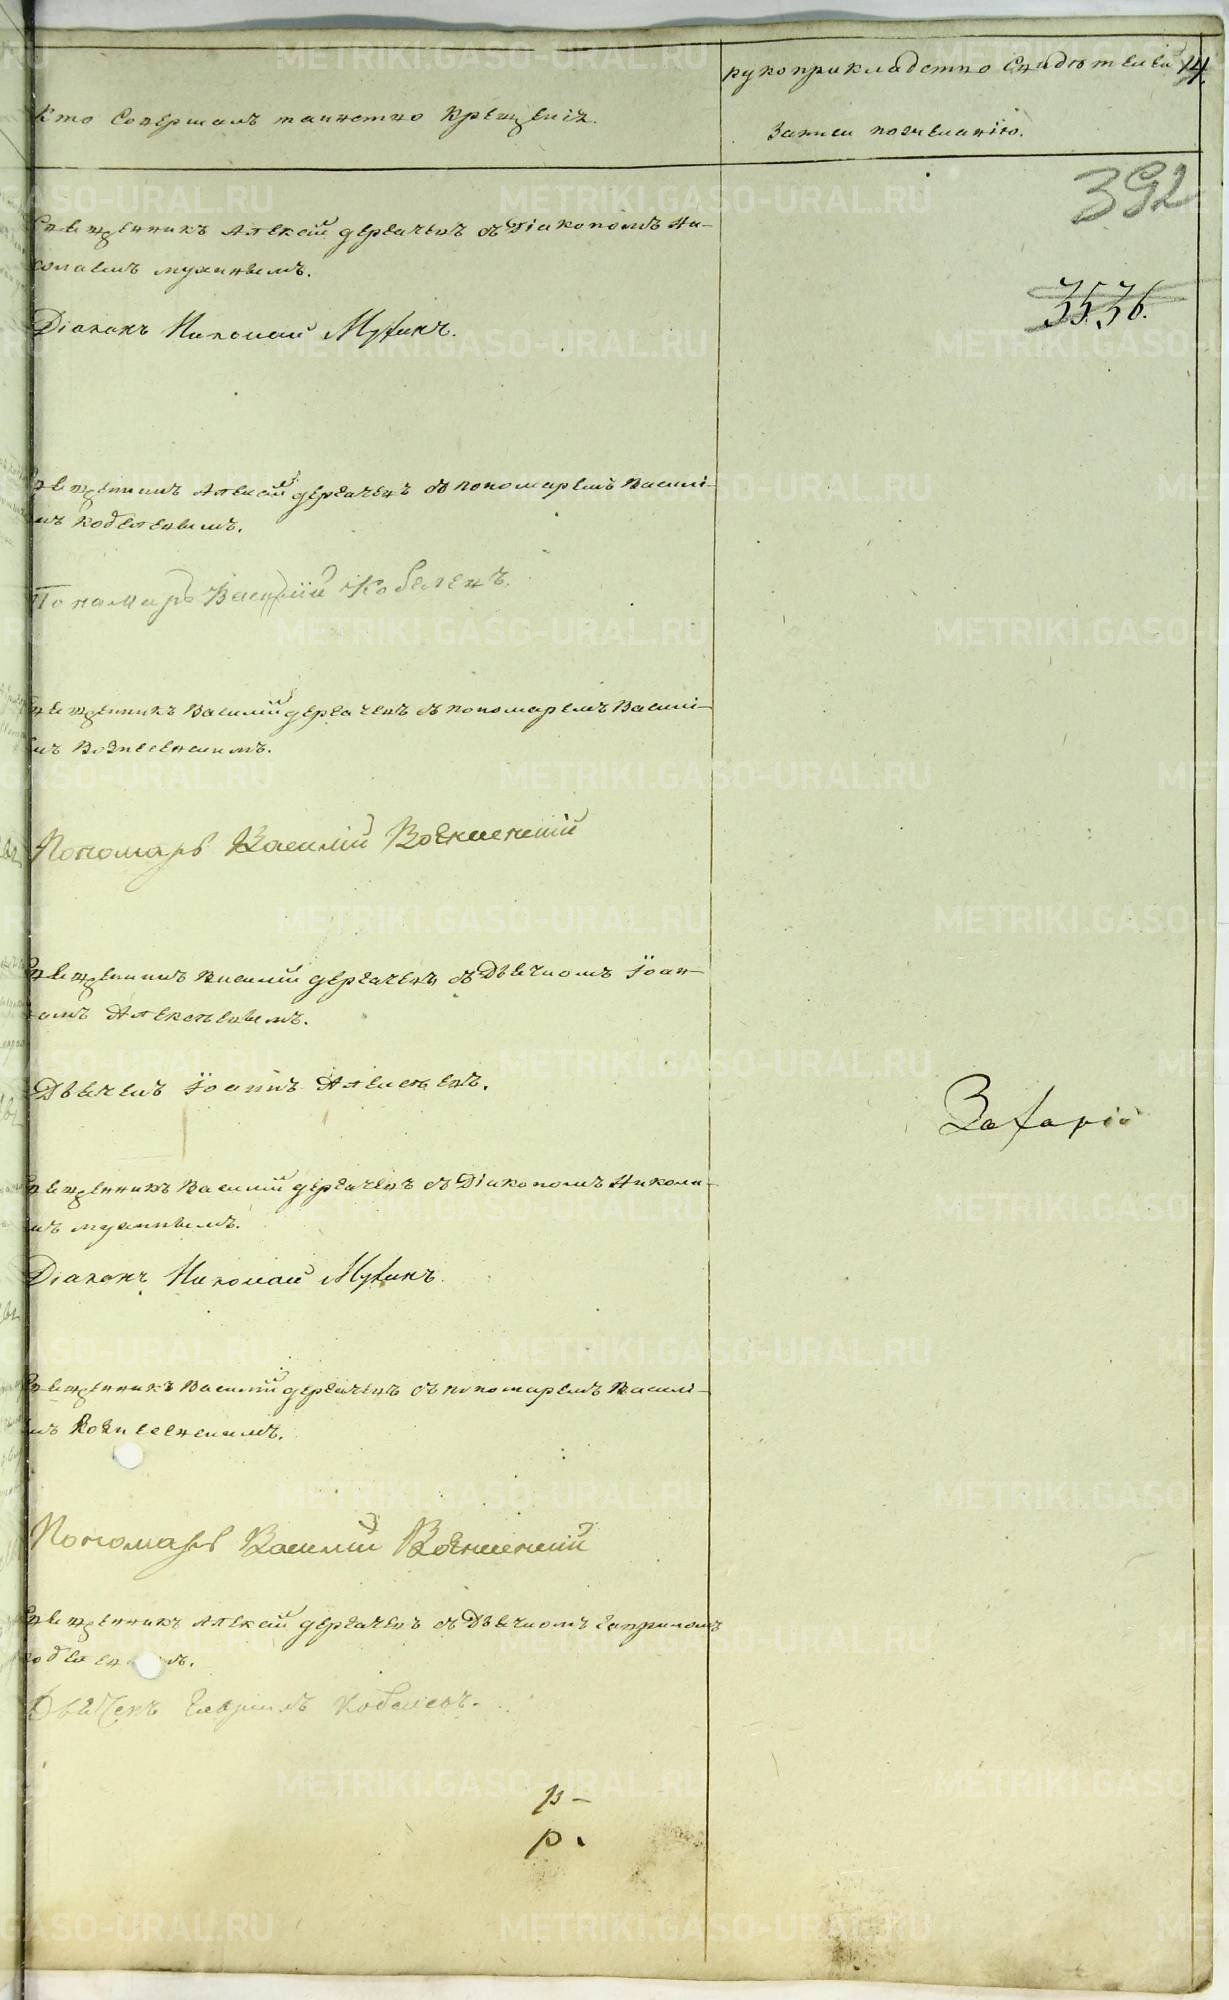 рукоприкладство Свидѣтелей 14.
Кто Совершалъ таинство Крещенія.
записи по желанію.
392
Священникъ Алексѣй Дергачевъ съ Діакономъ Ни-
колаемъ Мухинымъ.
3536.
Діаконъ Николай Мухинъ.
Священникъ Алексѣй Дергачевъ съ пономаремъ Василі-
мъ Кобелевымъ.
Пономарь Василій Кобелевъ.
Священникъ Василій Дергачевъ съ пономаремъ Василі-
мъ Вознесенскимъ.
Пономарь Василій Вознесенскій
Священникъ Василій Дергачевъ съ Дьячкомъ Іоан-
омъ Алексѣевымъ.
Дьячекъ Іоаннъ Алексѣевъ.
Захарій
Священникъ Василій Дергачевъ съ Діакономъ Никола-
мъ Мухинымъ.
Діаконъ Николай Мухинъ.
Священникъ Василій Дергачевъ съ пономаремъ Василі-
мъ Вознесенскимъ.
Пономарь Василій Вознесенскій
Священникъ Алексѣй Дергачевъ съ Дьячкомъ Гавриломъ
Кобелевымъ.
Дьячекъ Гаврилъ Кобелевъ.
р.
METRIKI.GASO-URAL.RU